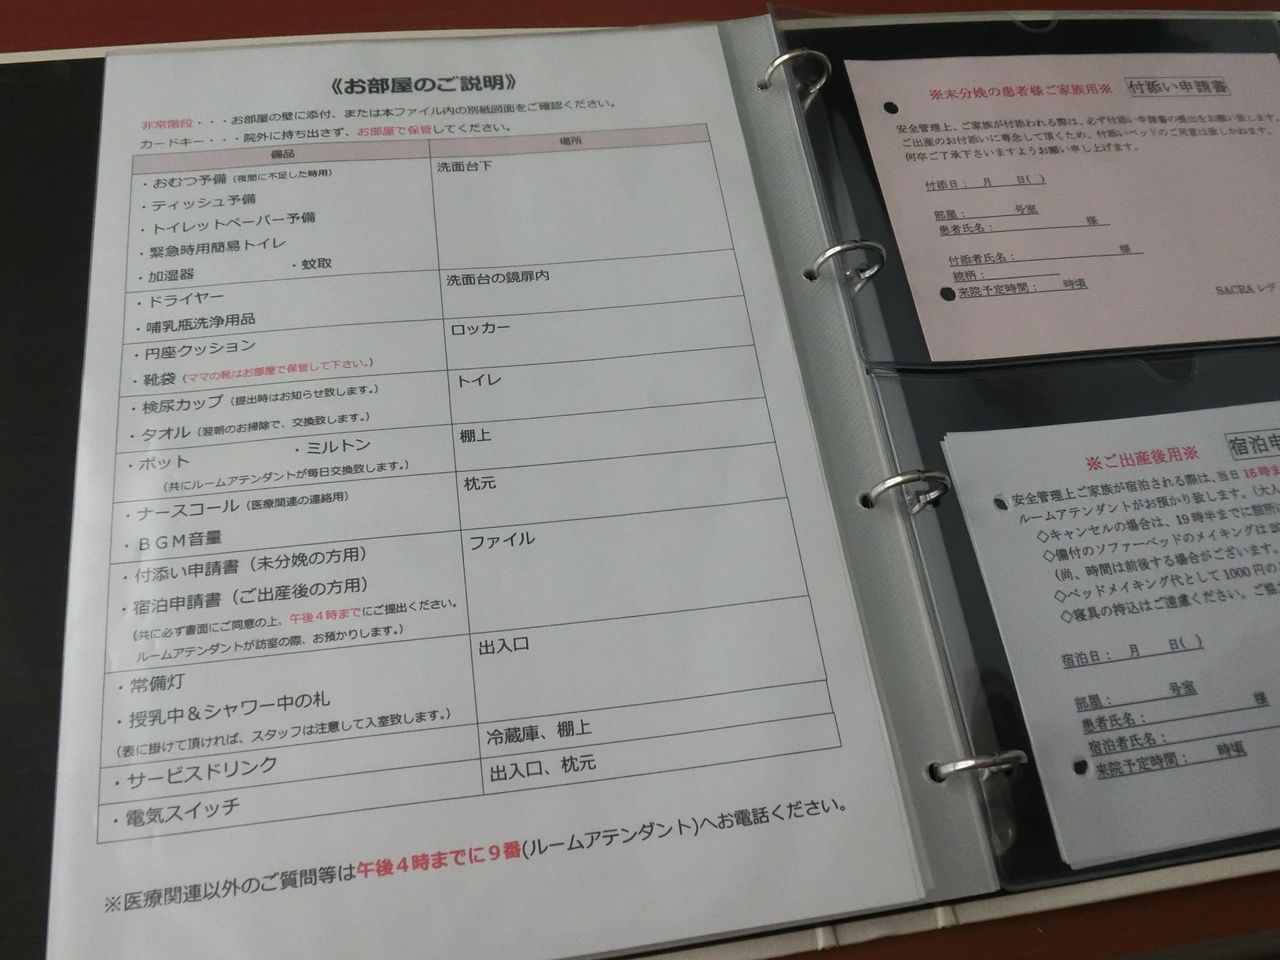 《お部屋のご説明》
非常階段・・・お部屋の壁に添付、または本ファイル内の別紙図面をご確認ください。
カードキー・・・院外に持ち出さず、お部屋で保管してください。
備品 場所
・おむつ予備（夜間に不足した時用） 洗面台下
・ティッシュ予備
・トイレットペーパー予備
・緊急時用簡易トイレ
・加湿器 ・蚊取
・ドライヤー 洗面台の鏡扉内
・哺乳瓶洗浄用品
・円座クッション ロッカー
・靴袋（ママの靴はお部屋で保管して下さい。）
・検尿カップ（提出時はお知らせ致します。） トイレ
・タオル（翌朝のお掃除で、交換致します。）
・ポット ・ミルトン 棚上
（共にルームアテンダントが毎日交換致します。）
・ナースコール（医療関連の連絡用） 枕元
・ＢＧＭ音量
・付添い申請書（未分娩の方用） ファイル
・宿泊申請書（ご出産後の方用）
（共に必ず書面にご同意の上、午後４時までにご提出ください。
ルームアテンダントが訪室の際、お預かりします。）
・常備灯 出入口
・授乳中＆シャワー中の札
（表に掛けて頂ければ、スタッフは注意して入室致します。）
・サービスドリンク 冷蔵庫、棚上
・電気スイッチ 出入口、枕元
※医療関連以外のご質問等は午後４時までに９番(ルームアテンダント)へお電話ください。
※未分娩の患者様ご家族用※ 付添い申請書
安全管理上、ご家族が付添われる際は、必ず付添い申請書の提出をお願い致します。
ご出産のお付添いに専念して頂くため、付添いベッドのご用意は致しかねます。
何卒ご了承下さいますようお願い申し上げます。
付添日： 月 日( )
部屋： 号室
患者氏名： 様
付添者氏名： 様
続柄：
来院予定時間： 時頃
SACRA レデ
※ご出産後用※ 宿泊申
安全管理上ご家族が宿泊される際は、当日 16時ま
ルームアテンダントがお預かり致します。（大人
◇キャンセルの場合は、19時半までに
◇備付のソファーベッドのメイキングは
（尚、時間は前後する場合がございます。
◇ベッドメイキング代として1000円の
◇寝具の持込はご遠慮ください。ご協
宿泊日： 月 日( )
部屋： 号室
患者氏名： 様
宿泊者氏名：
来院予定時間： 時頃